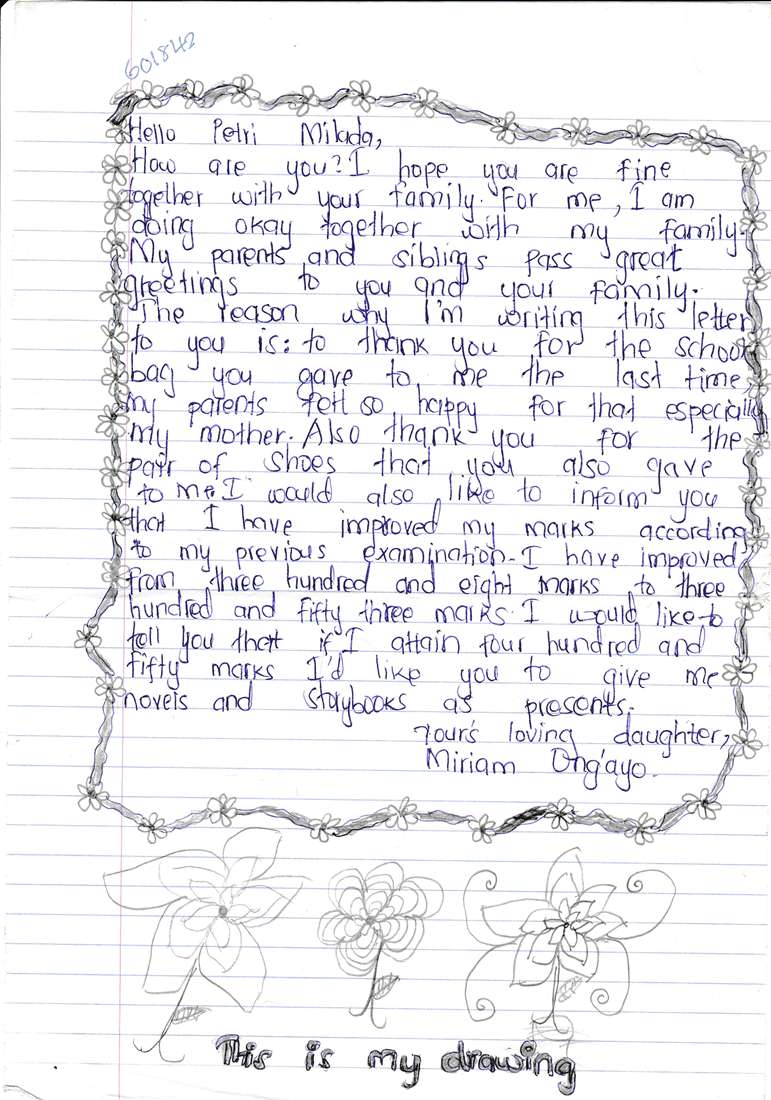 601842
Hello Petri Milada,
How are you? I hope you are fine
together with your family. For me, I am
doing okay together with my family.
My parents and siblings pass great
greetings to you and your family.
The reason why I'm writing this letter
to you is: to thank you for the school
bag you gave to me the last time,
my parents felt so happy for that especially
my mother. Also thank you for the
pair of shoes that you also gave
to me. I would also like to inform you
that I have improved my marks according
to my previous examination. I have improved
from three hundred and eight marks to three
hundred and fifty three marks. I would like to
tell you that if I attain four hundred and
fifty marks I'd like you to give me
novels and storybooks as presents.
Your's loving daughter,
Miriam Ong'ayo.
This is my drawing